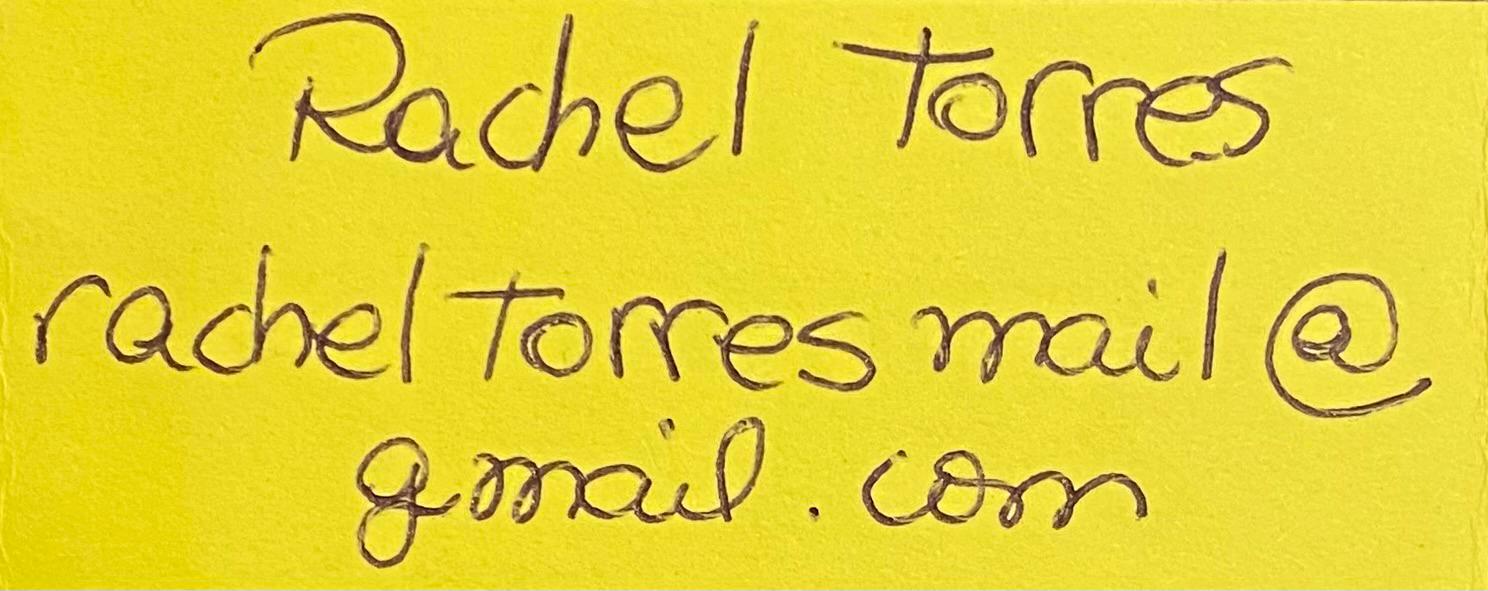 Rachel Torres
racheltorresmail@
gmail.com